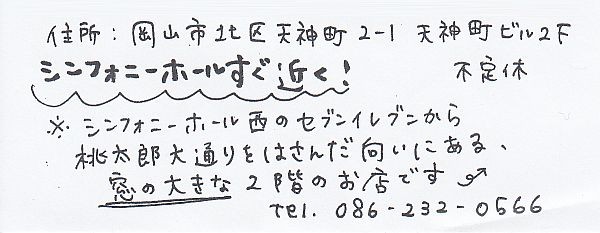 住所：岡山市北区天神町2-1 天神町ビル2F
シンフォニーホールすぐ近く! 不定休
※シンフォニーホール西のセブンイレブンから
桃太郎大通りをはさんだ向いにある、
窓の大きな2階のお店です
tel. 086-232-0566